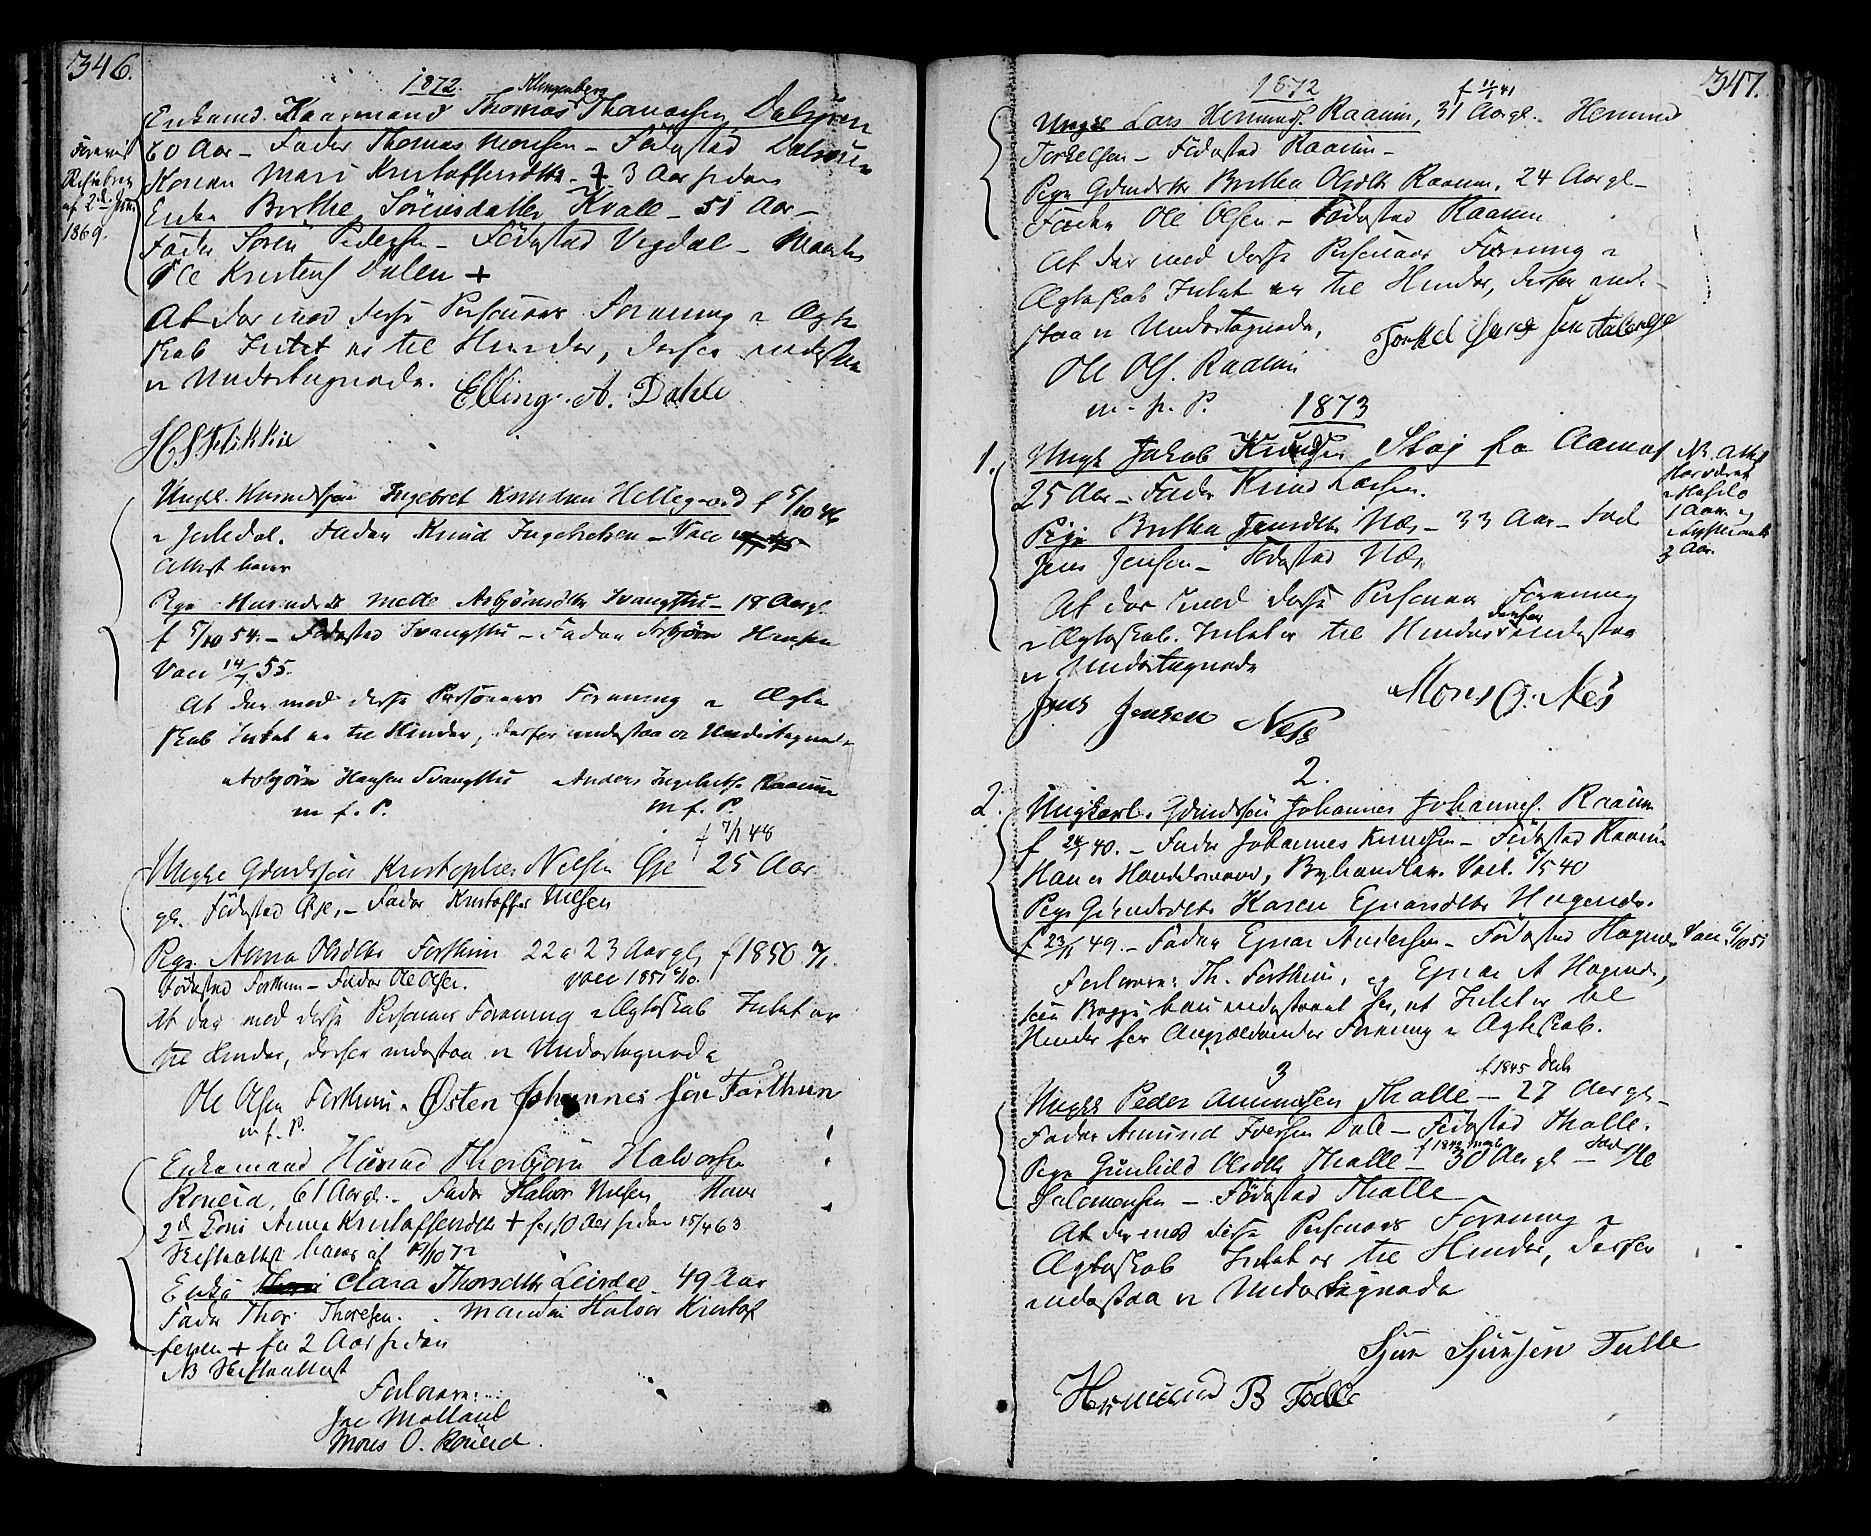 346.
1872. Klingenberg
Enkemd. Kaarmand Thomas Thomassen Dalsøren
60 Aar – Fader Thomas Monsen – Fødested Dalsøren
Konen Mari Kristoffersdtr. † 3 Aar siden
Enke Berthe Sørensdatter Kvale – 51 Aar –
Fader Søren Pedersen – Fødested Vigdal – Manden
Ole Kristens Dalen +
Skiftebrev
af 2den Juni
1869.
At der mod disse Personers Forening i Ægte
skab Intet er til Hinder, derfor indestaa
vi Undertegnede.
Elling A. Dahle
H S Flikkie
Ungk. Husmdssøn Ingebret Knudsen Hellegaard f 5/10 46
i Jiledal. Fader Knud Ingebretsen – Vacc
Attest haves
Pige Husmdsdt Mette Asbjørnsdtr Svangstu – 18 Aar gl.
f 5/10 54. – Fødested Svangstu – Fader Asbjørn Hansen
Vacc 14/7 55.
At der mod disse Personers Forening i Ægte
skab Intet er til Hinder, derfor indestaa vi Undertegnede
Asbjørn Hansen Svangstu Anders Ingebrets. Raaum
m. f. P. m f. P.
f 7/1 48
Ungk. Gdmdssøn Kristopher Nilsen Eje 25 Aar
gl. Fødested Eje, – Fader Kristoffer Nilsen
Pige Anna Olsdtr Forthun 22 a 23 Aar gl. f 1850 7/1.
Fødested Forthun – Fader Ole Olsen. Vacc 1851 6/10.
At der mod disse Personers Forening i Ægteskab Intet er
til Hinder, derfor indestaa vi Undertegnede
Ole Olsen Forthun. Østen Johannes søn Forthun
m f. P.
Enkemand Husmd Thorbjørn Halvorsen
Røneid, 61 Aar gl. – Fader Halvor Nilsen Hans
2d Kone Anna Kristoffersdtr + for 10 Aar siden 15/4 63
Skifteattest haves af 12/10 72
Enke Clara Thorsdtr Leirdal 49 Aar
Fader Thor Thoresen. Manden Halvor Kristof
fersen + for 2 Aar siden
NB Skifteattest
Forlovere:
Joe Molland
Mons O. Røneid.
347.
1872
f 11/1 41
Ungk. Lars Hermunds. Raaum, 31 Aar gl. Hermund
Torkelsen – Fødested Raaum –
Pige Gdmdsdtr Brithe Olsdtr Raaum. 24 Aar gl –
Fader Ole Olsen – Fødested Raaum
At der mod disse Personers Forening i
Ægteskab Intet er til Hinder, derfor inde-
staa vi Undertegnede,
Torkel Jens søn Aaberge
Ole Ols. Raaum
m. f. P.
1873
1. Ungk. Jakob Knudsen Skog fra Aamot
25 Aar – Fader Knud Larsen.
Pige Brithe Jensdtr Næs – 33 Aar – Fader
Jens Jensen – Fødested Næs
Nb. Attest
Har været
i Hafslo
1 Aar og
i Lyster
3 Aar.
At der mod disse Personers Forening
i Ægteskab Intet er til Hinder derfor indestaa
vi Undertegnede
Jens Jensen Ness Mons O. Nes
2.
2. Ungkarl. Gdmdssøn Johannes Johannes. Raaum
f 24/1 40. – Fader Johannes Knudsen – Fødested Raaum
Han er Handelsmand, Byhandlar. Vacc. 5/5 40
Pige Gdmdsdtr Karen Ejnarsdtr Hagende.
f 23/1 49. – Fader Ejnar Andersen – Fødested Hagende Vacc. 6/10 51
Forlovere: Th. Forthun, og Ejnar A Hagende,
som Begge have indestaaet for, at Intet er til
Hinder for Angjældendes Forening i Ægteskab.
3 f 1845 Decbr
Ungk. Peder Amundsen Tholle – 27 Aar gl. –
Fader Amund Iversen Dale – Fødested Tholle.
Pige Gunhild Olsdtr Tholle – f 1842 30 Aar gl – Fader Ole
Salomonsen – Fødested Tholle
At der mod disse Personers Forening i
Ægteskab Intet er til Hinder, derfor
indestaa vi Undertegnede
Sjur Sjursen Tulle
Hermund B Tolle